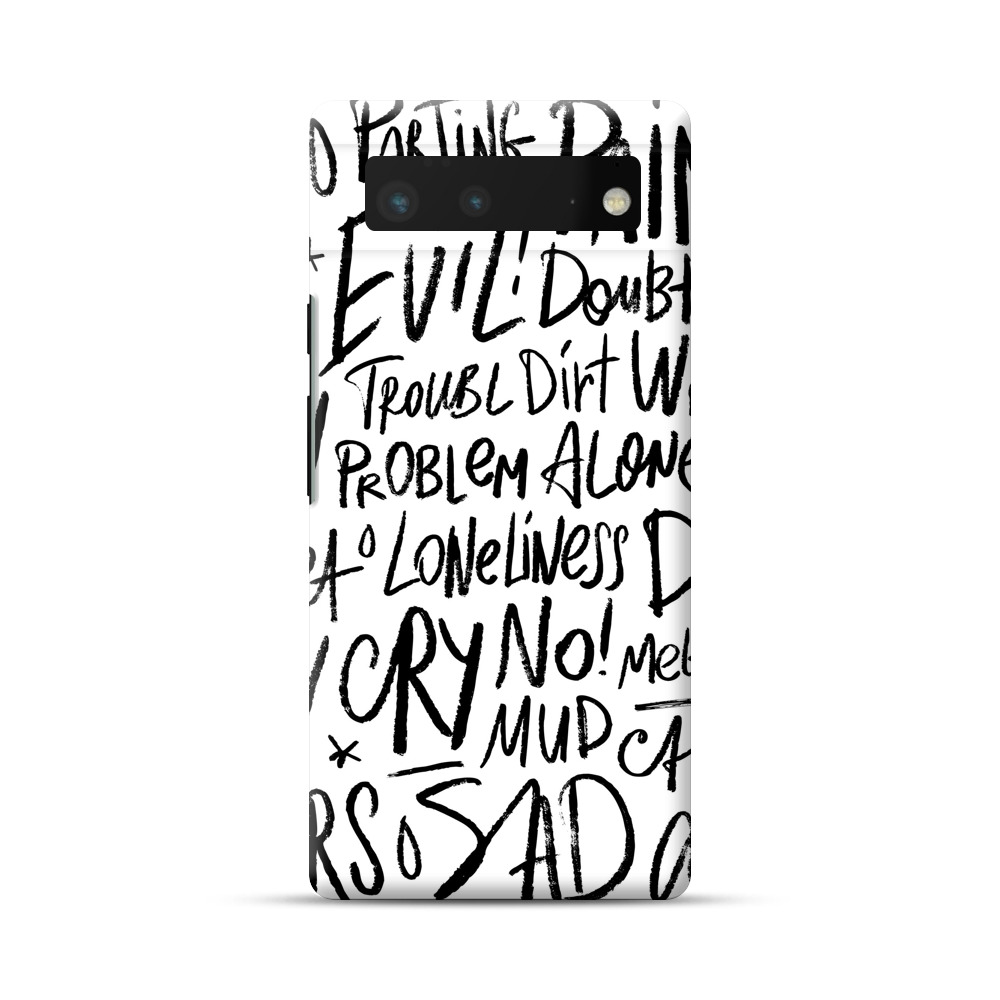 PORTING PAIN
EVIL! Doubt
TROUBL Dirt W
PROBLEM ALONE
CA LONELINESS D
CRY NO! Mel
MUD CA
RS SAD